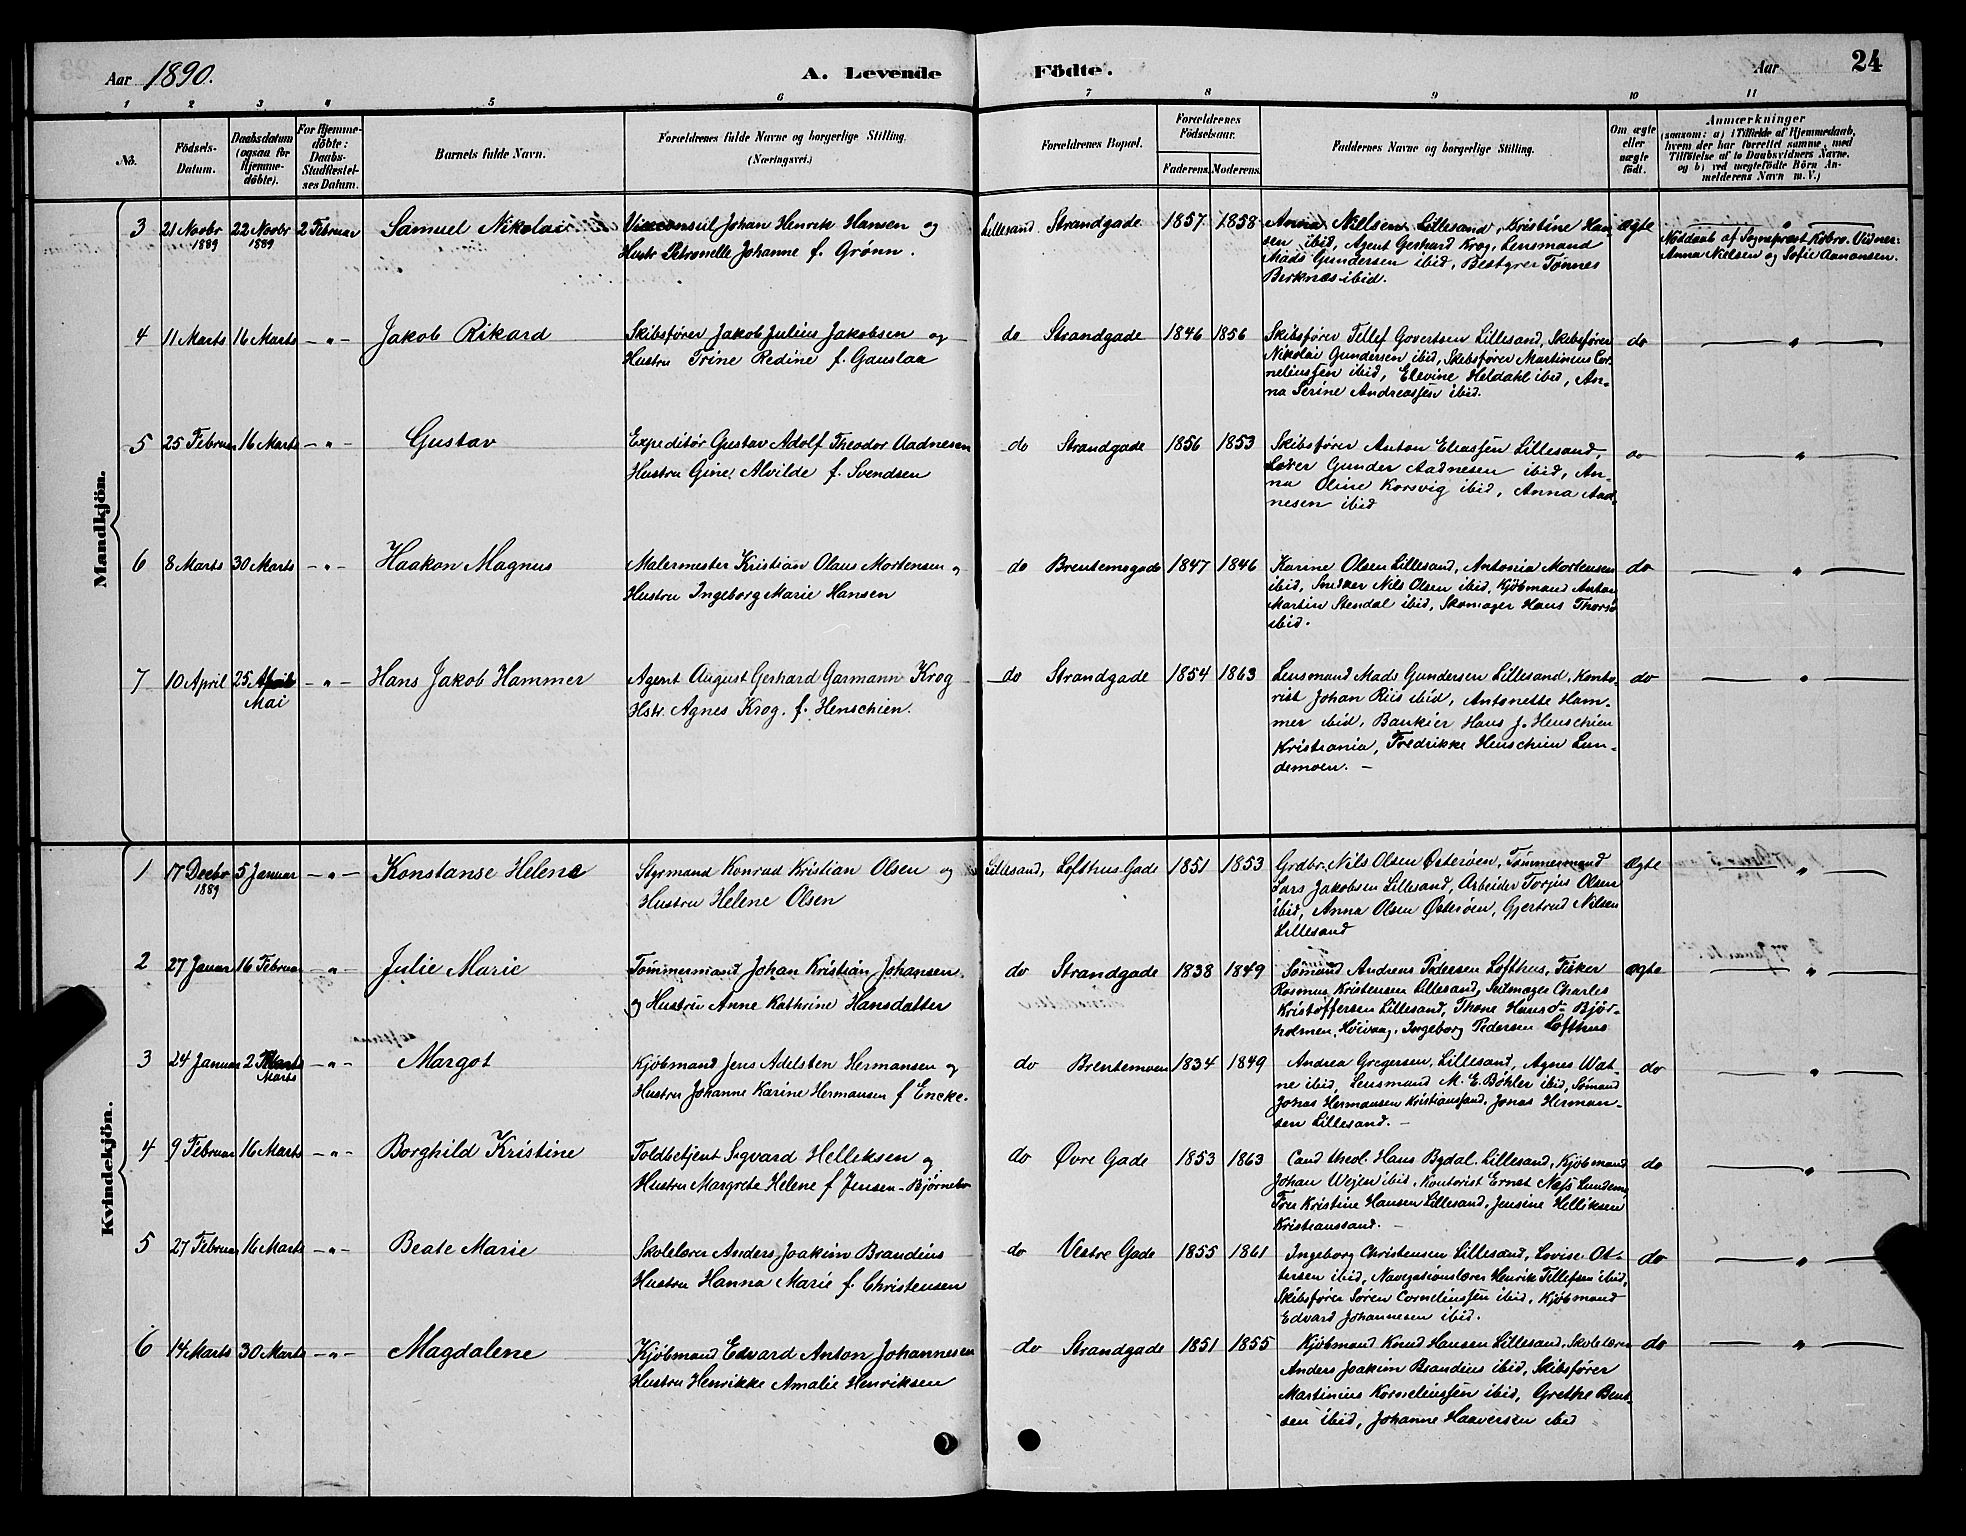 Aar 1890. A. Levende Födte. Aar 24
1 2 3 4 5 6 7 8 9 10 11
No. Födsels-Datum. Daabsdatum (ogsaa for Hjemmedöbte). For Hjemmedöbte: Daabs-Stadfæstelses Datum. Barnets fulde Navn. Forældrenes fulde Navne og borgerlige Stilling. (Næringsvei.) Forældrenes Bopæl. Forældrenes Födselsaar. Faderens. Moderens. Faddernes Navne og borgerlige Stilling. Om ægte eller uægte födt. Anmærkninger (saasom: a) i Tilfælde af Hjemmedaab, hvem der har forrettet samme, med Tilföielse af to Daabsvidners Navne, og b) ved uægtefödte Börn Anmelderens Navn m. V.)
Mandkjön.
3 21 Novbr 1889 22 Novbr 1889 2 Februar Samuel Nikolai Viceconsul Johan Henrik Hansen og Lillesand Strandgade 1857 1858 Anna Nielsen Lillesand, Kristine Han- Ægte — " —
Hustr Petronelle Johanne f. Grönn. sen ibid, Agent Gerhard Krog, Lensmand Nöddaab af Sognepræst Kobro. Vidner:
Mads Gundersen ibid, Bestyrer Tönnes Anna Nielsen og Sofie Aanonsen.
Berknæs ibid.
4 11 Marts 16 Marts - " - Jakob Rikard Skibsförer Jakob Julius Jakobsen og do Strandgade 1846 1856 Skibsförer Tellef Govertsen Lillesand, Skibsförer do — " —
Hustru Trine Redine f. Gauslaa Nikolai Gundersen ibid, Skibsförer Martinius Cor-
neliussen ibid, Elevine Heldahl ibid, An-
na Serine Andreassen ibid.
5 25 Februar 16 Marts - " - Gustav Expeditör Gustav Adolf Theodor Aadnesen do Strandgade 1856 1853 Skibsförer Anton Eliassen Lillesand, do — " —
Hustru Gine Alvilde f. Svendsen Gunder Aadnesen ibid, An-
na Oline Korsvig ibid, Anna Aad-
nesen ibid
6 8 Marts 30 Marts - " - Haakon Magnus Malermester Kristian Olaus Mortensen og do Brentemsgade 1847 1846 Karine Olsen Lillesand, Antonia Mortensen do — " —
Hustru Ingeborg Marie Hansen ibid, Snedker Nils Olsen ibid, Kjöbmand Anton
Martin Stendal ibid, Skomager Hans
ibid.
7 10 April 25 April Mai - " - Hans Jakob Hammer Agent August Gerhard Garmann Krog do Strandgade 1854 1863 Lensmand Mads Gundersen Lillesand, Konto- do — " —
Hstr. Agnes Krog. f. Henschien. rist Johan Riis ibid, Antonette Ham-
mer ibid, Bankier Hans J. Henschien
Kristiania, Fredrikke Henschien Lun-
demoen. —
Kvindekjön.
1 17 Decbr 1889 5 Januar - " - Konstanse Helene Styrmand Konrad Kristian Olsen og Lillesand, Lofthus Gade 1851 1853 Grdbr. Nils Olsen Österöen, Tömmermand Ægte — " —
Hustru Helene Olsen Lars Jakobsen Lillesand, Arbeider Torjus Olsen
ibid, Anna Olsen Österöen, Gjertrud Nilsen
Lillesand
2 27 Januar 16 Februar - " - Julie Marie Tömmermand Johan Kristian Johansen do Strandgade 1838 1849 Sömand Andreas Pedersen Lofthus, Fisker Ægte — " —
og Hustru Anne Kathrine Hansdatter Rasmus Kristensen Lillesand, Seilmager Charles
Kristoffersen Lillesand, Thone Hansd. Björ-
holmen, Höivaag, Ingeborg Pedersen Lofthus
3 24 Januar 2 Marts - " - Margot Kjöbmand Jens Adelsten Hermansen og do Brentemoen 1834 1849 Andrea Gregersen, Lillesand, Agnes Wat- do — " —
Hustru Johanne Karine Hermansen f Encke. ne ibid, Lensmand M. E. Böhler ibid, Sömand
Johas Hermansen Kristianssand, Jonas Herman-
sen Lillesand. —
4 9 Februar 16 Marts - " - Borghild Kristine Toldbetjent Sigvard Helliksen og do Övre Gade 1853 1863 Cand theol. Hans Bydal. Lillesand, Kjöbmand do — " —
Hustru Margrete Helene f Jensen-Björnebo Johan Wejen ibid. Kontorist Ernst Næss
Kristine Hansen Lillesand, Jensine Helliksen
Kristianssand. —
5 27 Februar 16 Marts - " - Beate Marie Skolelærer Anders Joakim Brandeus do Vestre Gade 1855 1861 Ingeborg Christensen Lillesand, Lovise Ot- do — " —
Hustru Hanna Marie f. Christensen tersen ibid, Navigasionslærer Henrik Tellefsen ibid,
Skibsförer Sören Corneliussen ibid, Kjöbmand
Edvard Johannesen ibid.
6 14 Marts 30 Marts - " - Magdalene Kjöbmand Edvard Anton Johannesen do Strandgade 1851 1855 Kjöbmand Knud Hansen Lillesand, Skolelærer do — " —
Hustru Henrikke Amalie Henriksen Anders Joakim Brandeus ibid, Skibsförer
Martinius Korneliussen ibid, Grethe Bent-
sen ibid, Johanne Haaversen ibid